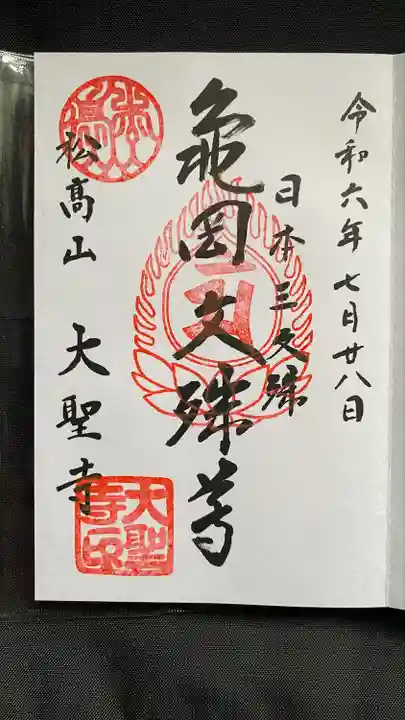 令和六年七月廿八日
日本三文殊
亀岡文殊尊
松高山 大聖寺
松高山
大聖
寺印